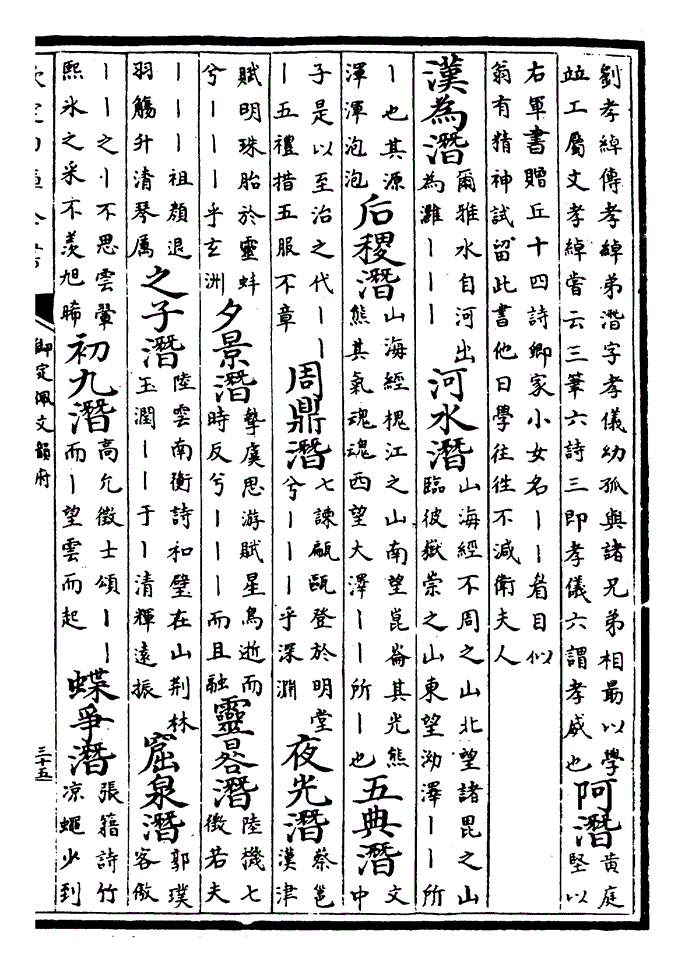 劉孝綽傳孝綽弟潛字孝儀幼孤與諸兄弟相最以學
竝工屬文孝綽嘗云三筆六詩三即孝儀六謂孝威也
阿潛
黃庭
堅以
右軍書贈丘十四詩卿家小女名丨丨眉目似
翁有精神試留此書他日學往往不減衛夫人
漢為潛
爾雅水自河出
為灉丨丨丨
河水潛
山海經不周之山北望諸毘之山
臨彼嶽崇之山東望泑澤丨丨所
丨也其源
渾渾泡泡
后稷潛
山海經槐江之山南望崑崙其光熊
熊其氣魂魂西望大澤丨丨所丨也
五典潛
文
中
子是以至治之代丨丨
丨五禮措五服不章
周鼎潛
七諫甂甌登於明堂
兮丨丨丨乎深淵
夜光潛
蔡邕
漢津
賦明珠胎於靈蚌
兮丨丨丨乎玄洲
夕景潛
摯虞思游賦星鳥逝而
時反兮丨丨丨而且融
靈晷潛
陸機七
徵若夫
丨丨丨祖顏退
羽觴升清琴厲
之子潛
陸雲南衡詩和璧在山荆林
玉潤丨丨于丨清輝遠振
窟泉潛
郭璞
客傲
丨丨之丨不思雲翬
熙冰之采不羨旭晞
初九潛
高允徵士頌丨丨
而丨望雲而起
蝶爭潛
張籍詩竹
凉蠅少到
欽定四庫全書
御定佩文韻府
三十五